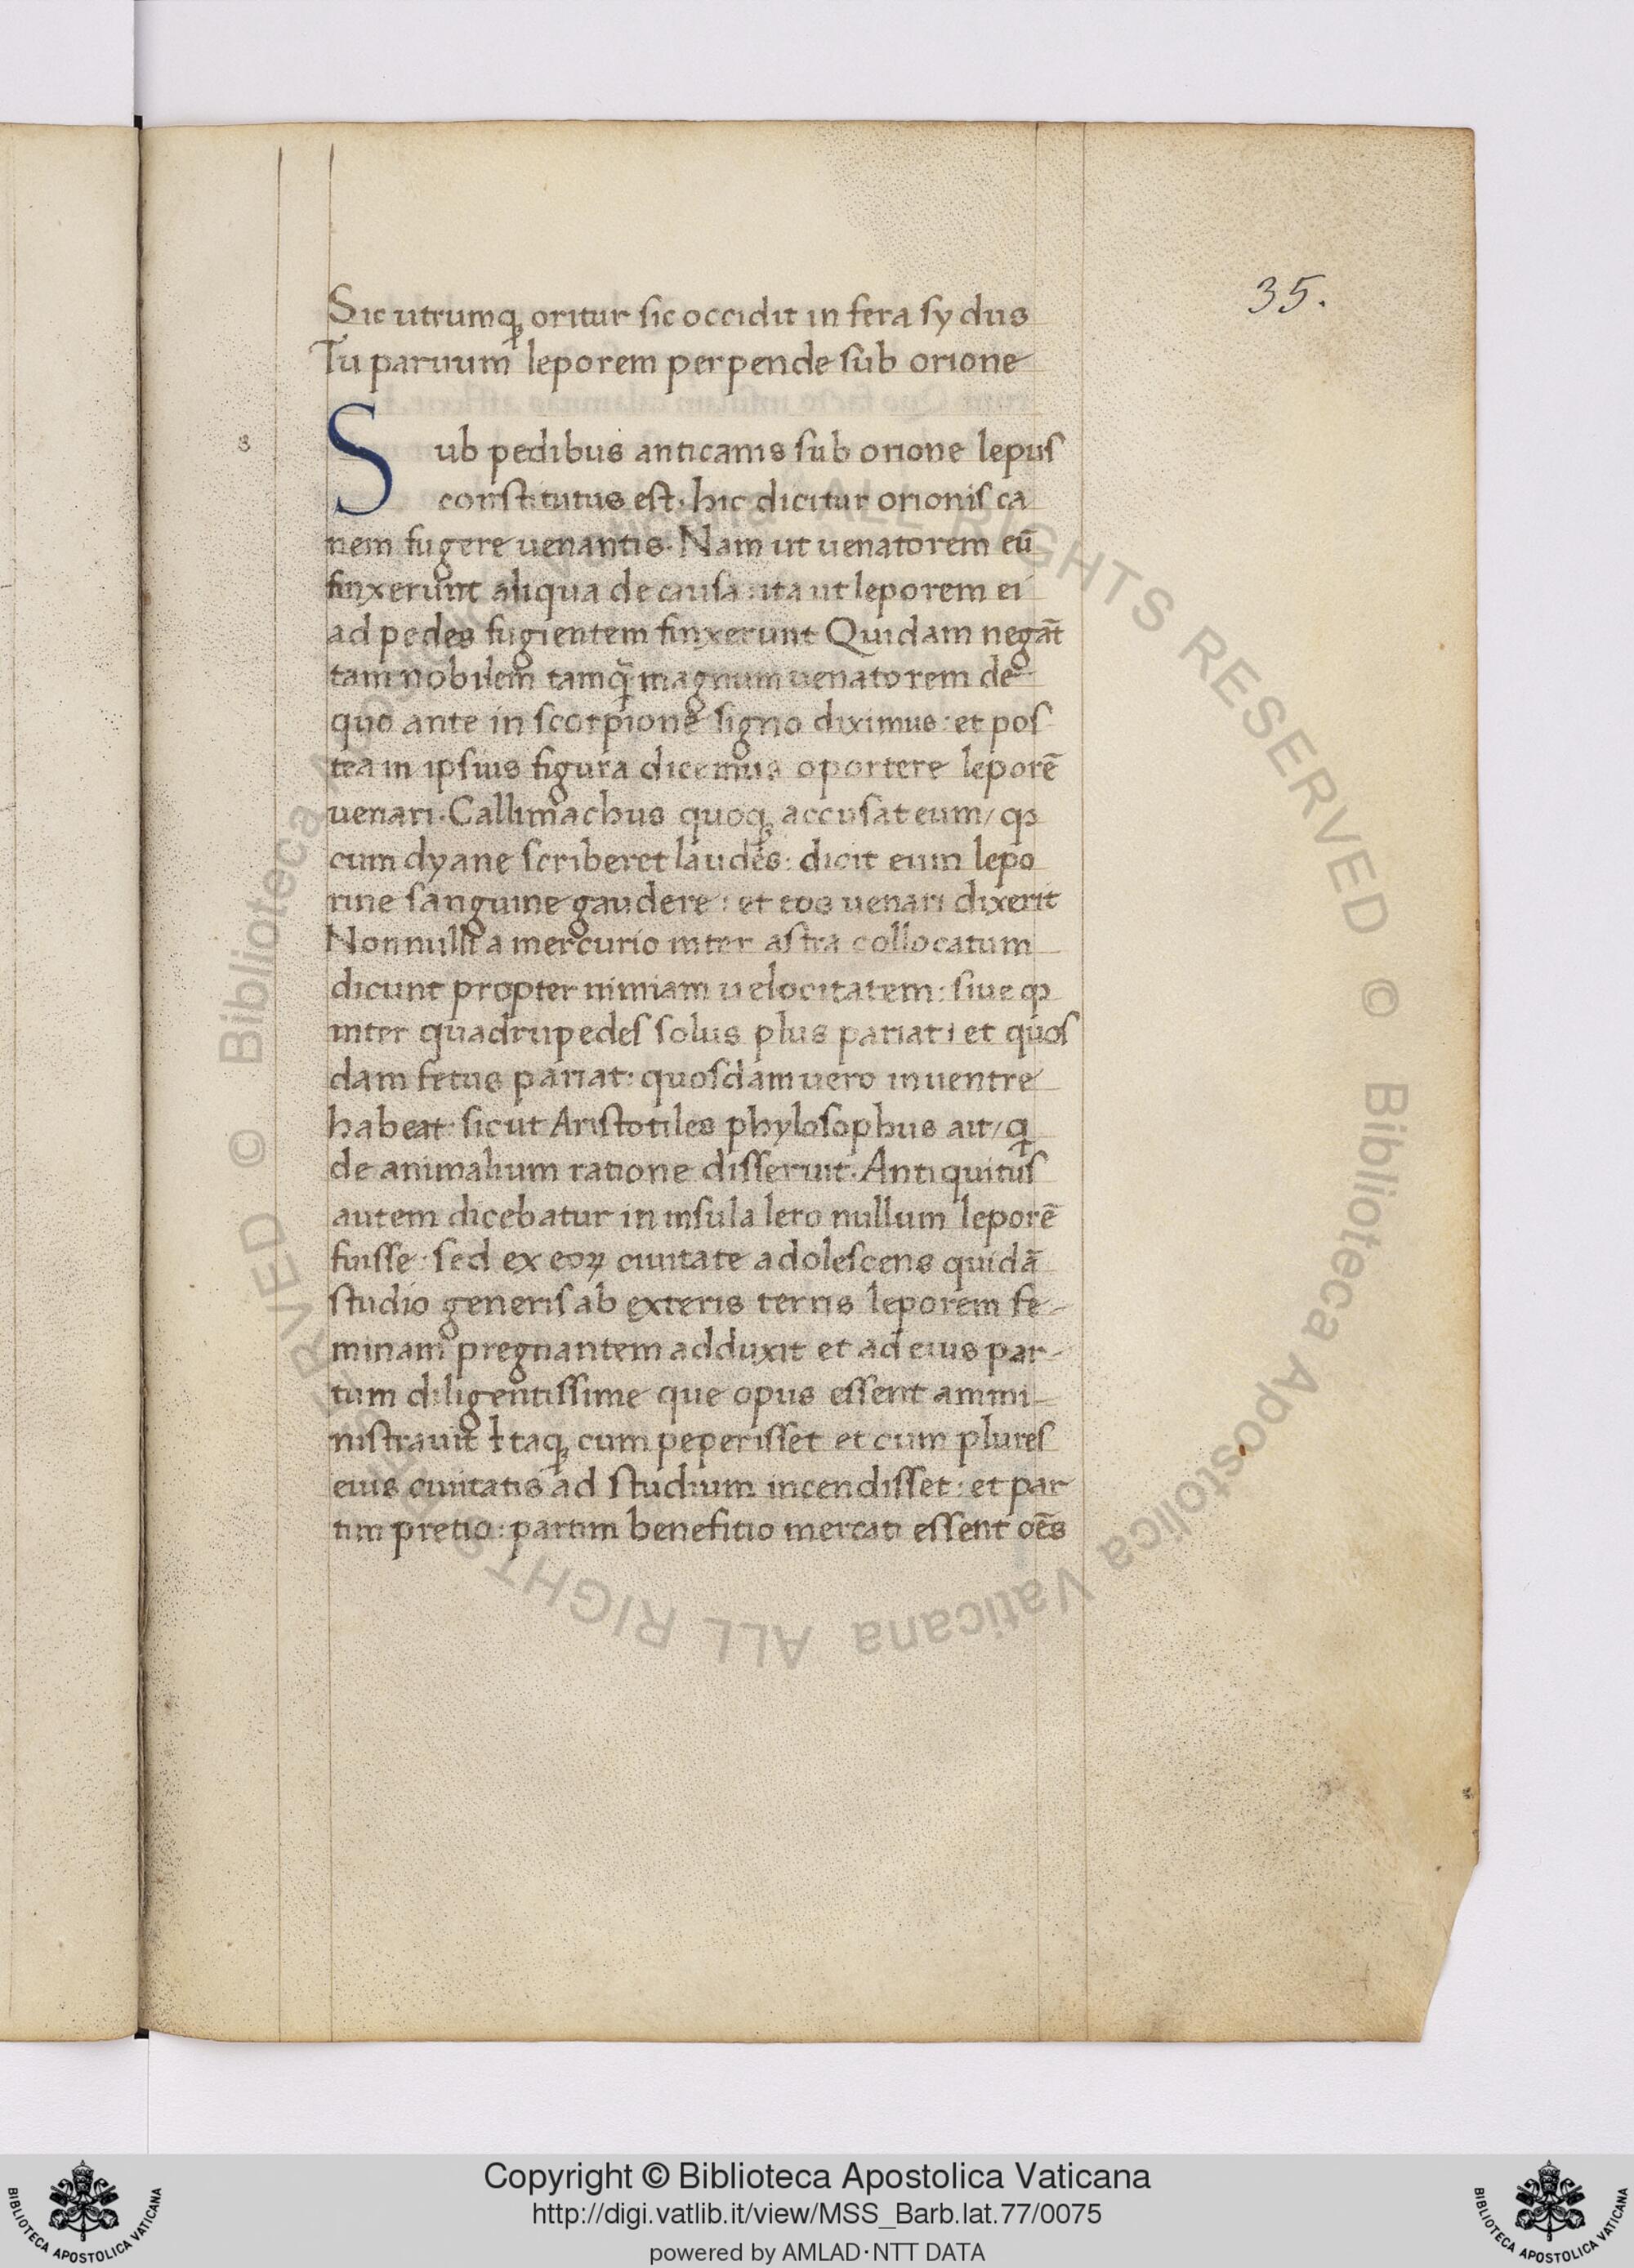 35.
Sic utrumqꝫ oritur sic occidit in fera sydus
Tu paruum leporem perpende sub orione
s
Sub pedibus anticanis sub orione lepuſ
conſtitutus eſt. hic dicitur orioniſ ca
nem fugere uenantis. Nam ut uenatorem eū
finxerunt aliqua de cauſa: ita ut leporem ei
ad pedes fugientem finxerunt Quidam negāt
tam nobilem tamq̄ magnum uenatorem de
quo ante in ſcorpione ſigno diximus: et poſ
tea in ipſius figura dicemus oportere leporē
uenari. Callimachus quoqꝫ accuſat eum/ ꝙ
cum dyane ſcriberet laudes: dicit eum lepo
rine ſanguine gaudere: et eos uenari dixerit
Nonnulli a mercurio inter aſtra collocatum
dicunt propter nimiam uelocitatem: ſiue ꝙ
inter quadrupedeſ ſolus plus pariat: et quoſ
dam fetus pariat: quoſdam uero in uentre
habeat: ſicut Ariſtotiles phyloſophus ait/ q
de animalium ratione diſſeruit. Antiquituſ
autem dicebatur in inſula lero nullum leporē
fuiſſe: ſed ex eoꝝ ciuitate adoleſcens quidā
ſtudio generiſ ab exteris terris leporem fe-
minam pregnantem adduxit et ad eius par-
tum diligentiſſime que opus eſſent ammi-
niſtrauit Itaqꝫ cum peperiſſet et cum plureſ
eius ciuitatis ad ſtudium incendiſſet: et par
tim pretio: partim benefitio mercati eſſent oēs
© Biblioteca Apostolica Vaticana ALL RIGHTS RESERVED © Biblioteca Apostolica Vaticana ALL RIGHTS RESERVED
Copyright © Biblioteca Apostolica Vaticana
http://digi.vatlib.it/view/MSS_Barb.lat.77/0075
powered by AMLAD·NTT DATA
BIBLIOTECA APOSTOLICA VATICANA
BIBLIOTECA APOSTOLICA VATICANA